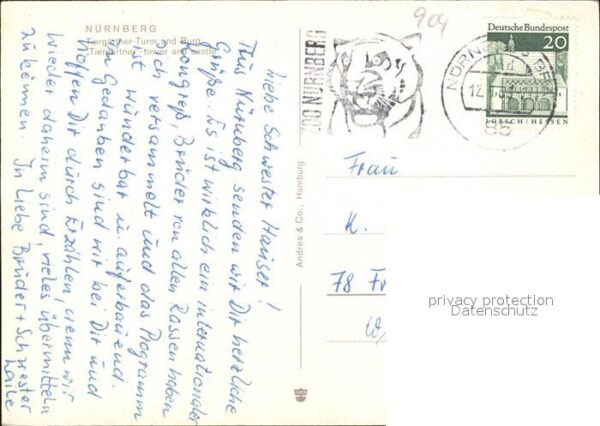 NÜRNBERG
Tiergärtner-Turm und Burg
Tiergärtner-tower and castle
Liebe Schwester Hauser!
Aus Nürnberg senden wir Dir herzliche
Grüße. Es ist wirklich ein internationaler
Kongreß, Brüder von allen Rassen haben
sich versammelt und das Programm
ist wunderbar u. auferbauend.
In Gedanken sind wir bei Dir und
hoffen Dir durch Erzählen, wenn wir
wieder daheim sind, vieles übermitteln
zu können. In Liebe Brüder + Schwester
Andres & Co., Hamburg
904
ZOO NÜRNBERG
Deutsche Bundespost
20
LORSCH/HESSEN
85
Frau
K.
78 Fr
privacy protection
Datenschutz